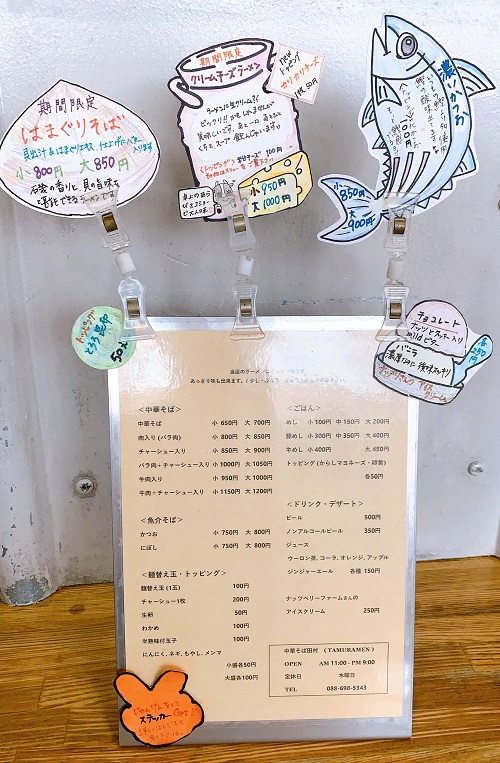 期間限定
はまぐりそば
貝出汁&はまぐりエキス 仕上げにバター入ります
小 800円 大 850円
期間限定
クリームチーズラーメン
ラーメンに生クリーム?!
ビックリ!!
美味しいです。
<トッピング> 粉チーズ 100円
小 950円
大 1000円
NEWトッピング
ホリホリチーズ
1枚50円
濃いかつお
小 850円
大 900円
トッピング
とろろ昆布
50円
チョコレート
ナッツとクッキー入り
mildビター
バニラ
アイスクリーム
各250円
当店のラーメンは
あっさり味も出来ます。
<中華そば>
中華そば 小 650円 大 700円
肉入り (バラ肉) 小 800円 大 850円
チャーシュー入り 小 850円 大 900円
バラ肉+チャーシュー入り 小 1000円 大 1050円
牛肉入り 小 950円 大 1000円
牛肉+チャーシュー入り 小 1150円 大 1200円
<魚介そば>
かつお 小 750円 大 800円
にぼし 小 750円 大 800円
<麺替え玉・トッピング>
麺替え玉 (1玉) 100円
チャーシュー1枚 200円
生卵 50円
わかめ 100円
半熟味付玉子 100円
にんにく、ネギ、もやし、メンマ
小盛各50円
大盛各100円
<ごはん>
めし 小 100円 中 150円 大 200円
豚めし 小 300円 中 350円 大 400円
牛めし 小 400円 大 450円
トッピング (からしマヨネーズ・卵黄)
各50円
<ドリンク・デザート>
ビール 500円
ノンアルコールビール 350円
ジュース
ウーロン茶、コーラ、オレンジ、アップル
ジンジャーエール 各種 150円
ナッツベリーファームさんの
アイスクリーム 250円
中華そば田村 ( TAMURAMEN )
OPEN AM 11:00 - PM 9:00
定休日 木曜日
TEL 088-698-5343
じゃんけんをして
ステッカー Get!!